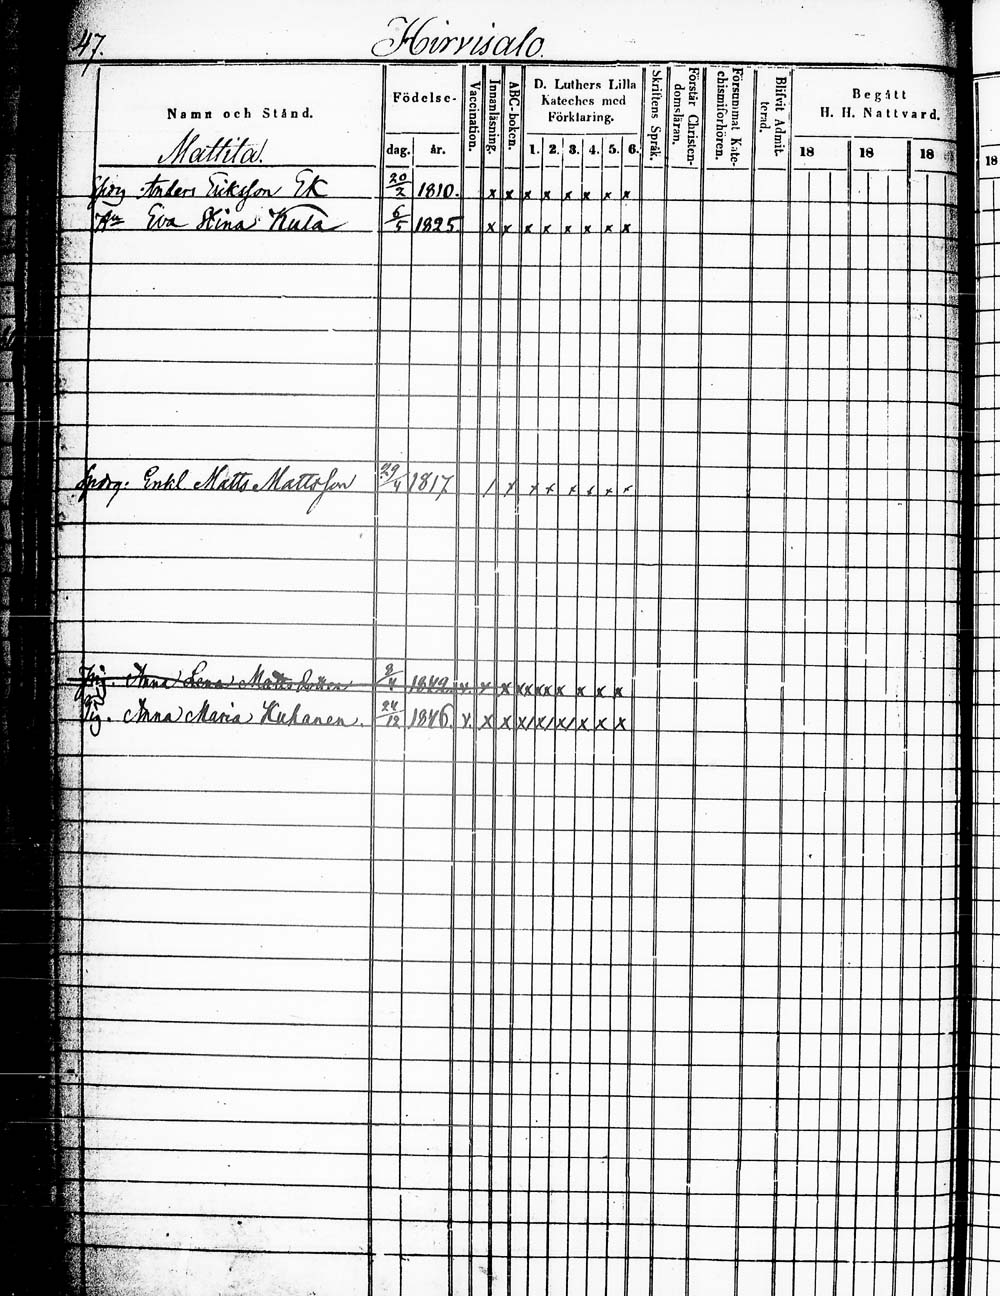 47. Hirvisalo.
Namn och Stånd.
Födelse-
dag. år.
Vaccination.
Innanläsning.
ABC-boken.
D. Luthers Lilla
Kateches med
Förklaring.
1. 2. 3. 4. 5. 6.
Skriftens Språk.
Förstår Christen-
domsläran.
Försummat Kate-
chismiförhören.
Blifvit Admit-
terad.
Begått
H. H. Nattvard.
18 18 18 18
Mattila.
Anders Eriksson Ek 20/2 1810. x x x x x x x x
Eva Stina Kula 6/5 1825 x x x x x x x x
Enkl Matts Mattsson 29/4 1817 / x x x x x x x
Anna Lena 9/4 1842. v. x x xx xx x x x x x
Pig. Anna Maria Kuhanen. 24/12 1846. v. x x x/x/x/ x x x